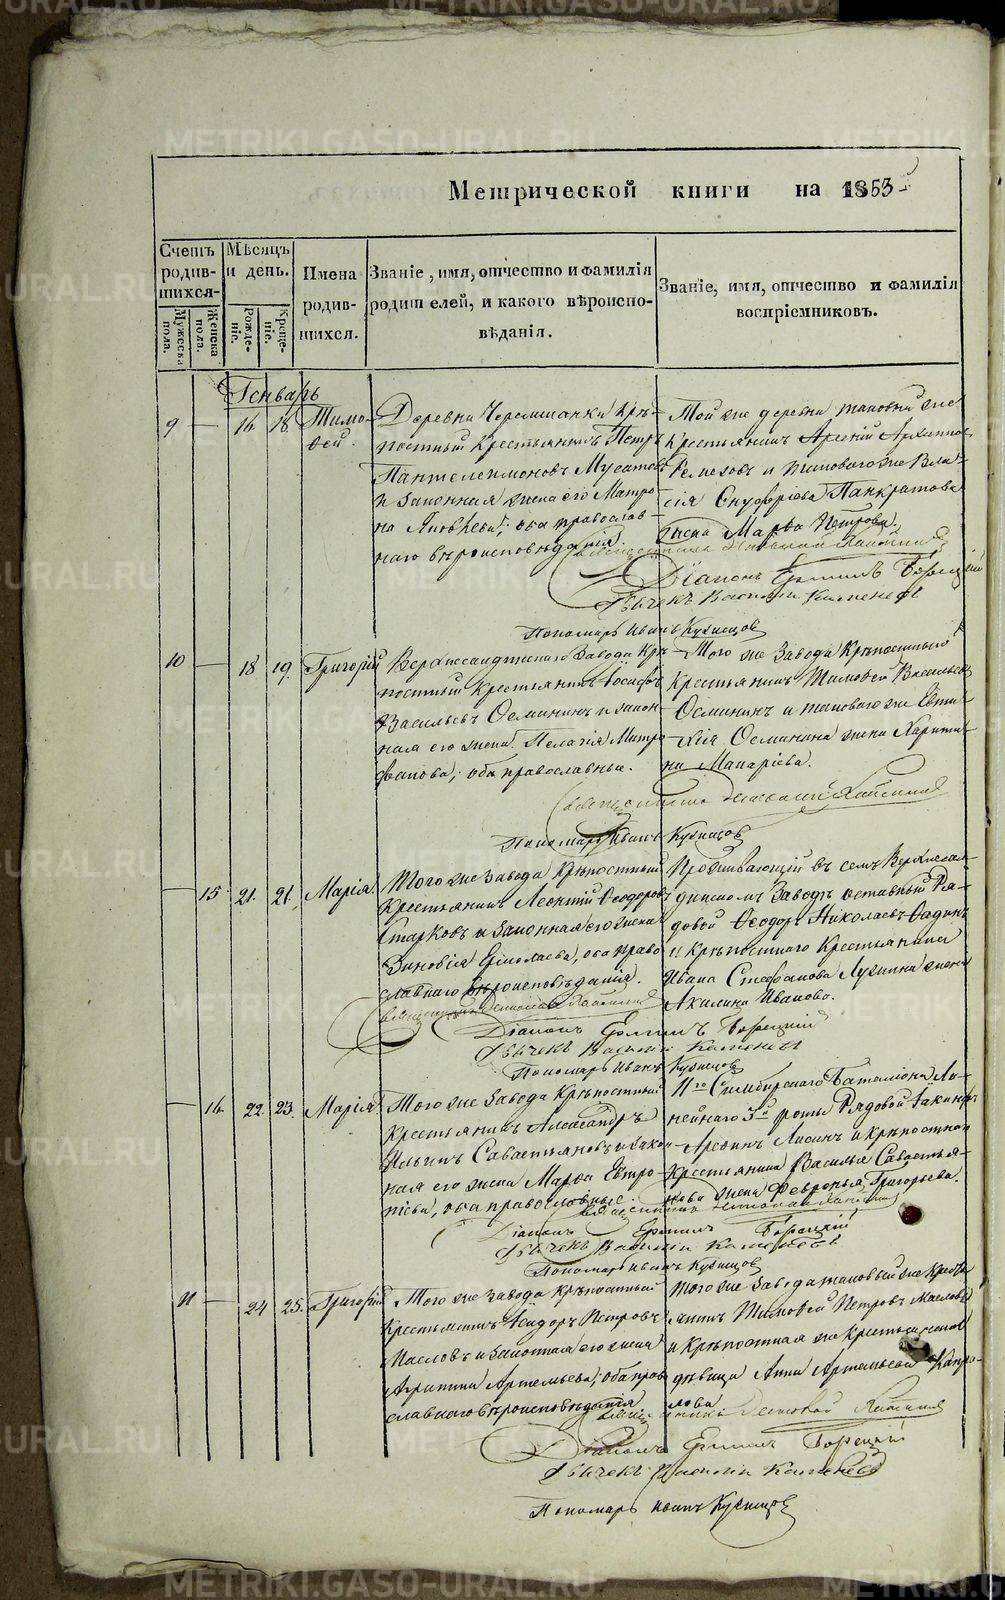 METRIKI.GASO-URAL.RU
Метрической книги на 1853
Счетъ родив-шихся.
Мужеска пола.
Женска пола.
Мѣсяцъ и день.
Рожде-ніе.
Креще-ніе.
Имена родив-шихся.
Званіе, имя, отчество и фамилія родителей, и какого вѣроиспо-вѣданія.
Званіе, имя, отчество и фамилія воспріемниковъ.
Генварь
9 — 16 18 Тимо-
фей.
Деревни Черемшанки крѣ-
постный крестьянинъ Петръ
Пантелеимоновъ Мусатовъ
и законная жена его Матро-
на Яковлева; оба православ-
наго вѣроисповѣданія.
Той же деревни таковый же
крестьянинъ Архиповъ
Ремезовъ и таковаго же Вла-
сія Онуфріева Панкратова
жена Марѳа Петрова.
Діаконъ Борецкій
Дьячекъ Василій
Пономарь Иванъ Кузнецовъ
10 — 18 19. Григорій
Верхнесалдинскаго Завода крѣ-
постный крестьянинъ Іосифъ
Васильевъ Осминин и закон-
ная его жена Пелагія Митро-
фанова; оба православные.
Того же Завода Крѣпостный
крестьянинъ Тимофей Васильевъ
Осмининъ и таковаго же Евти-
хія Осминина жена Харити-
на Макаріева.
Пономарь Иванъ Кузнецовъ
— 15 21. 21. Марія.
Того же Завода Крѣпостный
Крестьянинъ Леонтій Ѳеодоровъ
Старковъ и законная его жена
Зиновія Ермолаева, оба право
славнаго вѣроисповѣданія.
Проживающій въ семъ Верхнесал-
динскомъ Заводѣ отставный Ря-
довой Ѳеодоръ Николаевъ
и Крѣпостнаго Крестьянина
Ивана Стефанова Лузина жена
Акилина Иванова.
Діаконъ Борецкій
Дьячекъ Василій
Пономарь Иванъ Кузнецовъ
— 16 22. 23. Марія.
Того же Завода Крѣпостный
Крестьянинъ Александръ
Ильинъ Савастьяновъ и закон-
ная его жена Марѳа Евтро-
піева, оба православные.
Симбирскаго Баталіона Ли-
нейнаго 3й роты Рядовой
Лисинъ и крѣпостнаго
Крестьянина Василья Савастья-
нова жена Февронья Григорьева.
Діаконъ Борецкій
Дьячекъ Василій
Пономарь Иванъ Кузнецовъ
11 — 24 25. Григорій
Того же Завода крѣпостный
Крестьянинъ Петровъ
Масловъ и законная его жена
Агрипина Артемьева; оба пра-
славнаго вѣроисповѣданія
Того же Завода таковый же Кресть-
янинъ Тимофей Петровъ Масловъ
и крѣпостная же крестьянская
дѣвица Анна Артемьева
Діаконъ Борецкій
Дьячекъ Василій
Пономарь Иванъ Кузнецовъ